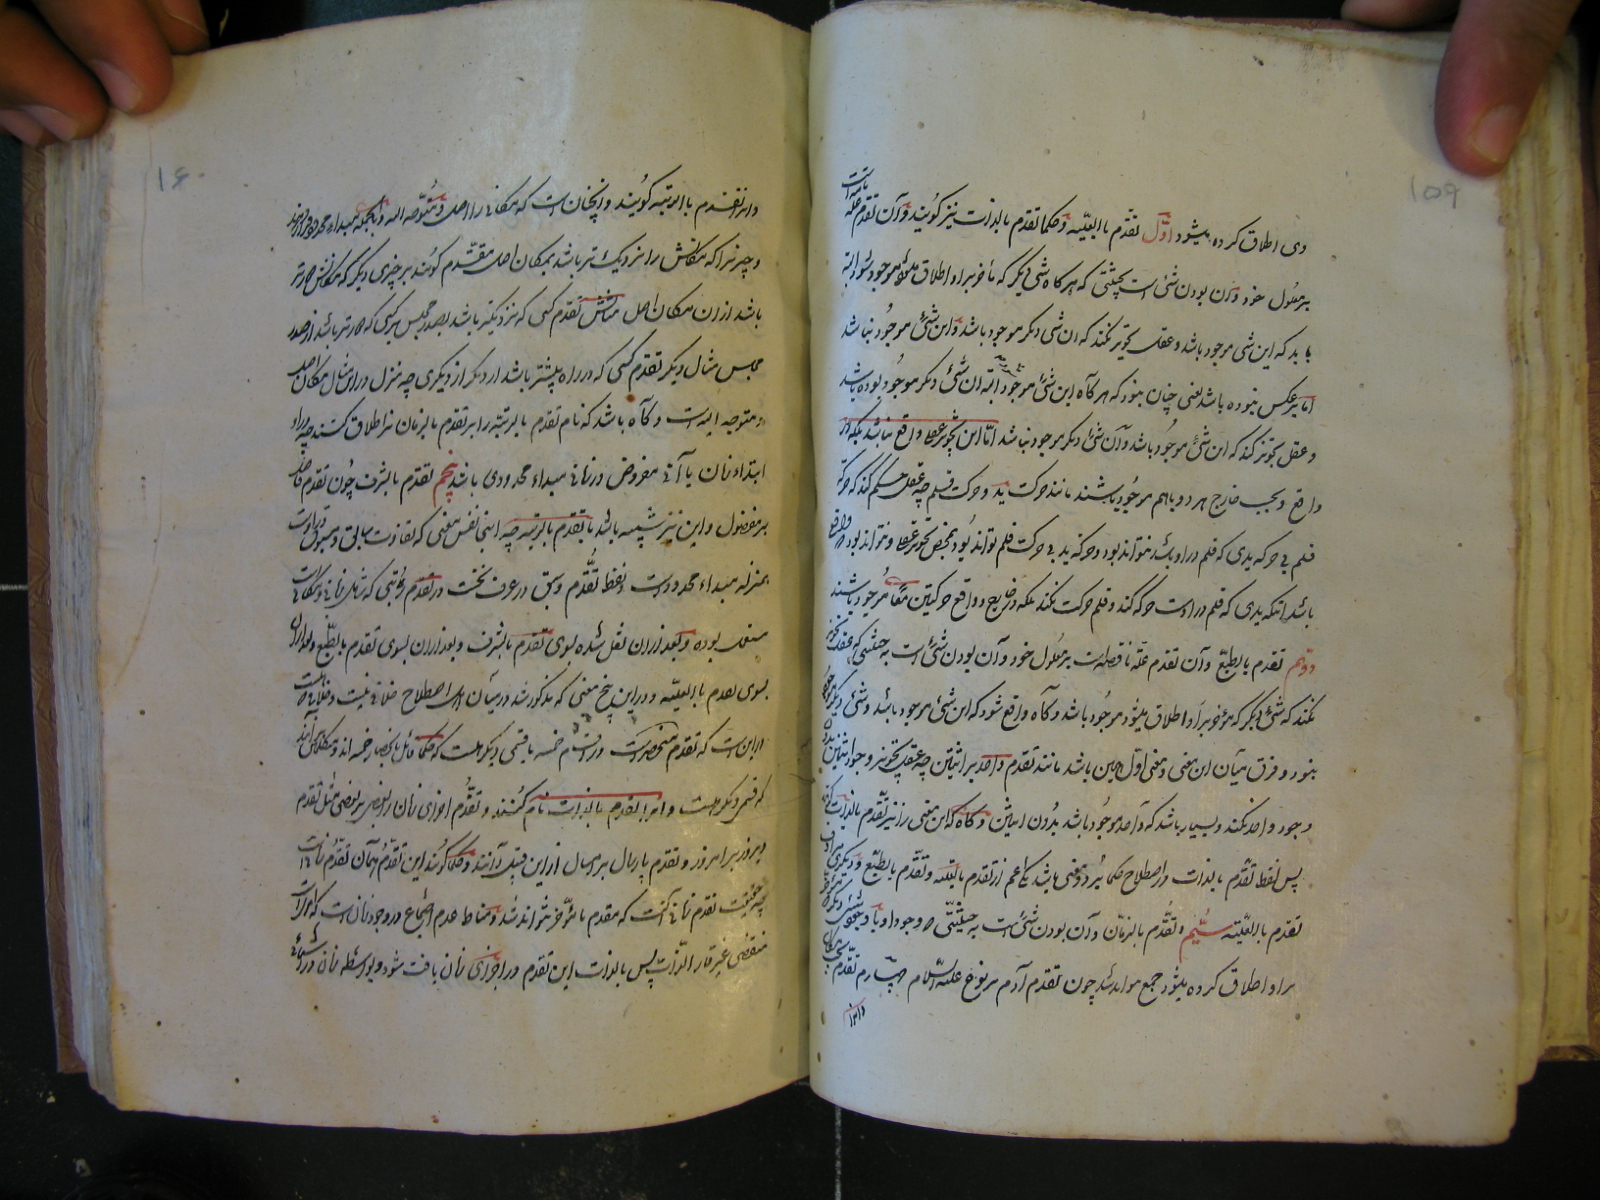 ۱۵۹
وی اطلاق کرده میشود اوّل تقدّم بالعلیّه و حکما تقدم بالذات نیز کویند و آن تقدم علة
بر معلول خود و آن بودن شئ است بحیثیتی که هر کاه شی دیکر که مأخر براو اطلاق میشود موجود شود البته
باید که این شی موجود باشد و عقل تجویز نکند که ان شی دیکر موجود باشد و این شئ موجود نباشد
اما بر عکس نبوده باشد یعنی چنان نبود که هر کاه این شئ موجود البته ان شئ دیکر موجود بوده باشد
و عقل تجویز کند که این شئ موجود باشد و آن شئ دیکر موجود نباشد امّا این تجویز عقلا واقع نباشد بلکه در
واقع و بحسب خارج هر دو باهم موجود باشند مانند حرکت ید و حرکت قلم چه عقل حکم کند که حرکة
قلم بی حرکه یدی که قلم در او باشد نتواند بود و حرکه ید بی حرکت قلم تواند بود
باشد انکه یدی که قلم در اوست حرکه کند و قلم حرکت نکند بلکه در خارج و واقع حرکتین معا موجود باشند
دوّیم تقدم بالطبع و آن تقدم علّة ناقصه است بر معلول خود و آن بودن شئ است به حیثیتی که عقل تجویز
نکند که شئ دیکر که مؤخر براو اطلاق میشود موجود باشد و کاه واقع شود که این شئ موجود باشد و شئ دیکر
نبود و فرق میان این معنی و معنی اوّل همین باشد مانند تقدم واحد بر اثنین چه عقل تجویز وجود اثنین
وجود واحد نکند و بسیار باشد که واحد موجود باشد بدون اثنین و کاه که این معنی را نیز تقدم بالذات
پس لفظ تقدّم بالذات در اصطلاح حکما بر دو معنی باشد یکی اعم از تقدم بالعلیه و تقدّم بالطبع و دیکری
تقدم بالعلیّه سیّم تقدّم بالزمان و آن بودن شئ است به حیثیّتی که وجود او با وجود شئ دیکر که
براو اطلاق کرده میشود جمع نتواند شد چون تقدم آدم بر نوح علیه السّلام چهارم تقدّم
و انرا
۱۶۰
و انرا تقدم بالرتبه کویند و انچنان است که مکانی را اصل و متوجه الیه و بالجمله مبداء محدود فرض کنند
و چیزی را که مکانش را نزدیک تر باشد بمکان اصل متقدم کویند بر چیزی دیکر که مکانش دورتر
باشد از ان مکان اصل مثالش تقدم کسی که نزدیکتر باشد بصدر مجلس بر کسی که دورتر باشد از صدر
مجلس مثال دیکر تقدم کسی که در راه پیشتر باشد از دیکری چه منزل در این مثال مکان اصل
و متوجه الیه است و کاه باشد که نام تقدم بالرتبه را بر تقدم بالزمان نیز اطلاق کنند چه در او
ابتداء زمان یا آنی مفروض در زمانی مبداء محدودی باشد پنجم تقدم بالشرف چون تقدم فاضل
بر مفضول و این نیز شبیه باشد بتقدم بالرتبه چه اینجا نفس معنی که تفاوت سابق و مسبوق در اوست
بمنزله مبداء محدود است و لفظ تقدّم و سبق در عرف نخست در تقدم رتبتی که شامل زمانی و مکانی است
مستعمل بوده و بعد از ان نقل شده بسوی تقدم بالشرف و بعد از ان بسوی تقدم بالطبع و بعد از ان
بسوی تقدم بالعلیّه و در این پنج معنی که مذکور شد در میان اهل اصطلاح خلافی نیست و خلاف
در این است که تقدم منحصر است در اقسام خمسه یا قسمی دیکر هست که حکماء قائل بانحصار در خمسه اند و متکلمین برآنند
که قسمی دیکر هست و انرا تقدم بالذات نام کنند و تقدّم اجزای زمان را بعض بر بعضی مثل تقدم
دیروز بر امروز و تقدم پارسال بر امسال از این قبیل دانند و حکما کویند این تقدّم همان تقدّم زمانیست
چه حقیقت تقدم زمانی آنست که مقدم با مؤخر جمع نتواند شد و مناط عدم اجتماع در وجود زمان است که امریست
منقضی غیر قار الذّات پس بالذات این تقدم در اجزای زمان یافت شود و بواسطه زمان در اشیاء